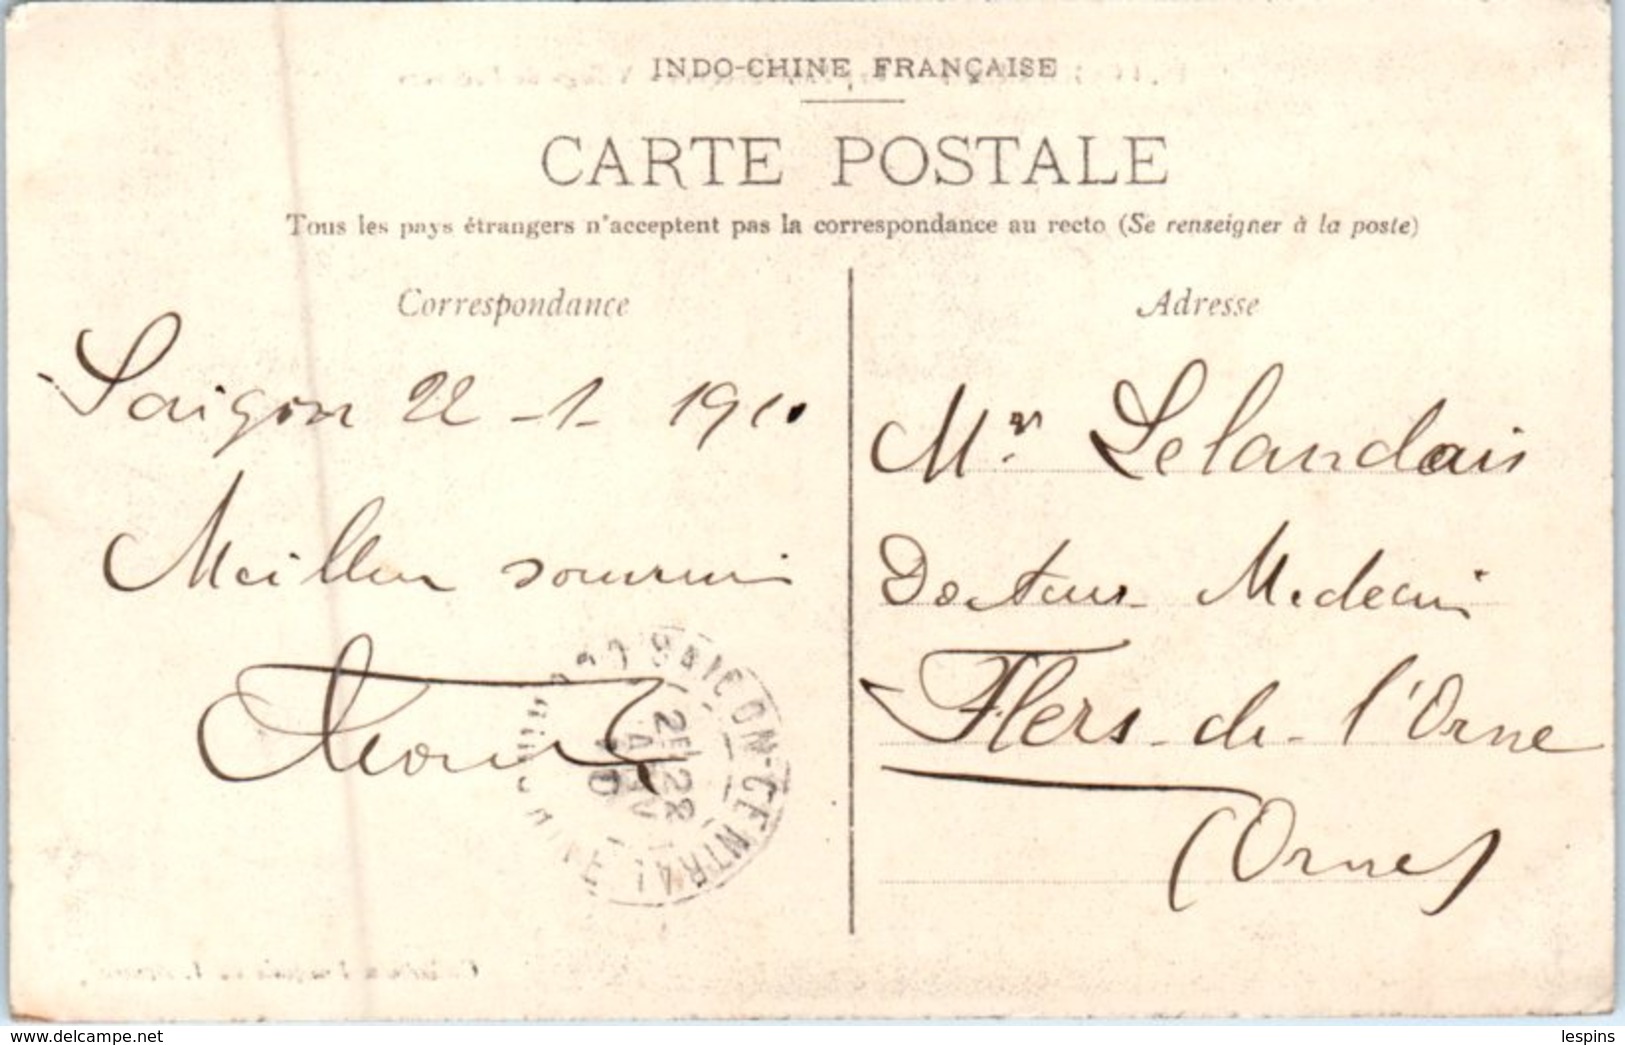 INDO-CHINE FRANÇAISE
CARTE POSTALE
Tous les pays étrangers n'acceptent pas la correspondance au recto (Se renseigner à la poste)
Correspondance
Saigon 22-1-1910
Meilleur souvenir
SAIGON-CENTRAL
Adresse
Mr. Lelandais
Docteur Medecin
Flers-de-l'Orne
(Orne)
www.delcampe.net
lespins